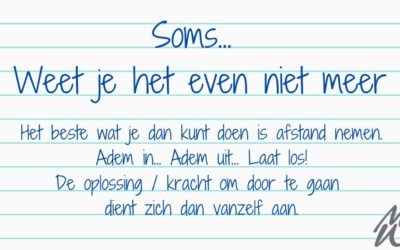 Soms...
Weet je het even niet meer
Het beste wat je dan kunt doen is afstand nemen.
Adem in... Adem uit... Laat los!
De oplossing / kracht om door te gaan
dient zich dan vanzelf aan.